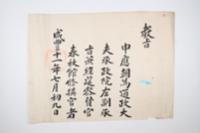 敎旨
申應朝爲通政大
夫承政院左副承
旨兼經筵參贊官
春秋館修撰官者
咸豊十一年七月初九日